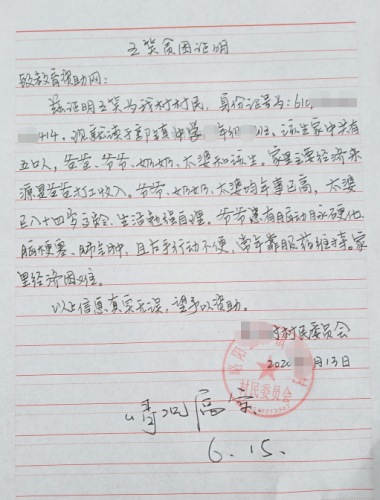 王笑贫困证明
致教育资助网:
兹证明王笑为我村村民,身份证号为:610
414。现就读于郭镇中学 年级 班。该生家中共有
五口人,爸爸、爷爷、奶奶、太婆和该生。家里主要经济来
源是爸爸打工收入。爷爷、奶奶、太婆均年事已高,太婆
已八十四岁高龄,生活勉强自理。爷爷患有脑动脉硬化
脑梗塞、肺气肿,且右手行动不便,常年靠服药维持。家
里经济困难。
以上信息真实无误,望予以资助。
村村民委员会
202 月13日
略阳
村民委员会
情况属实
6.15.